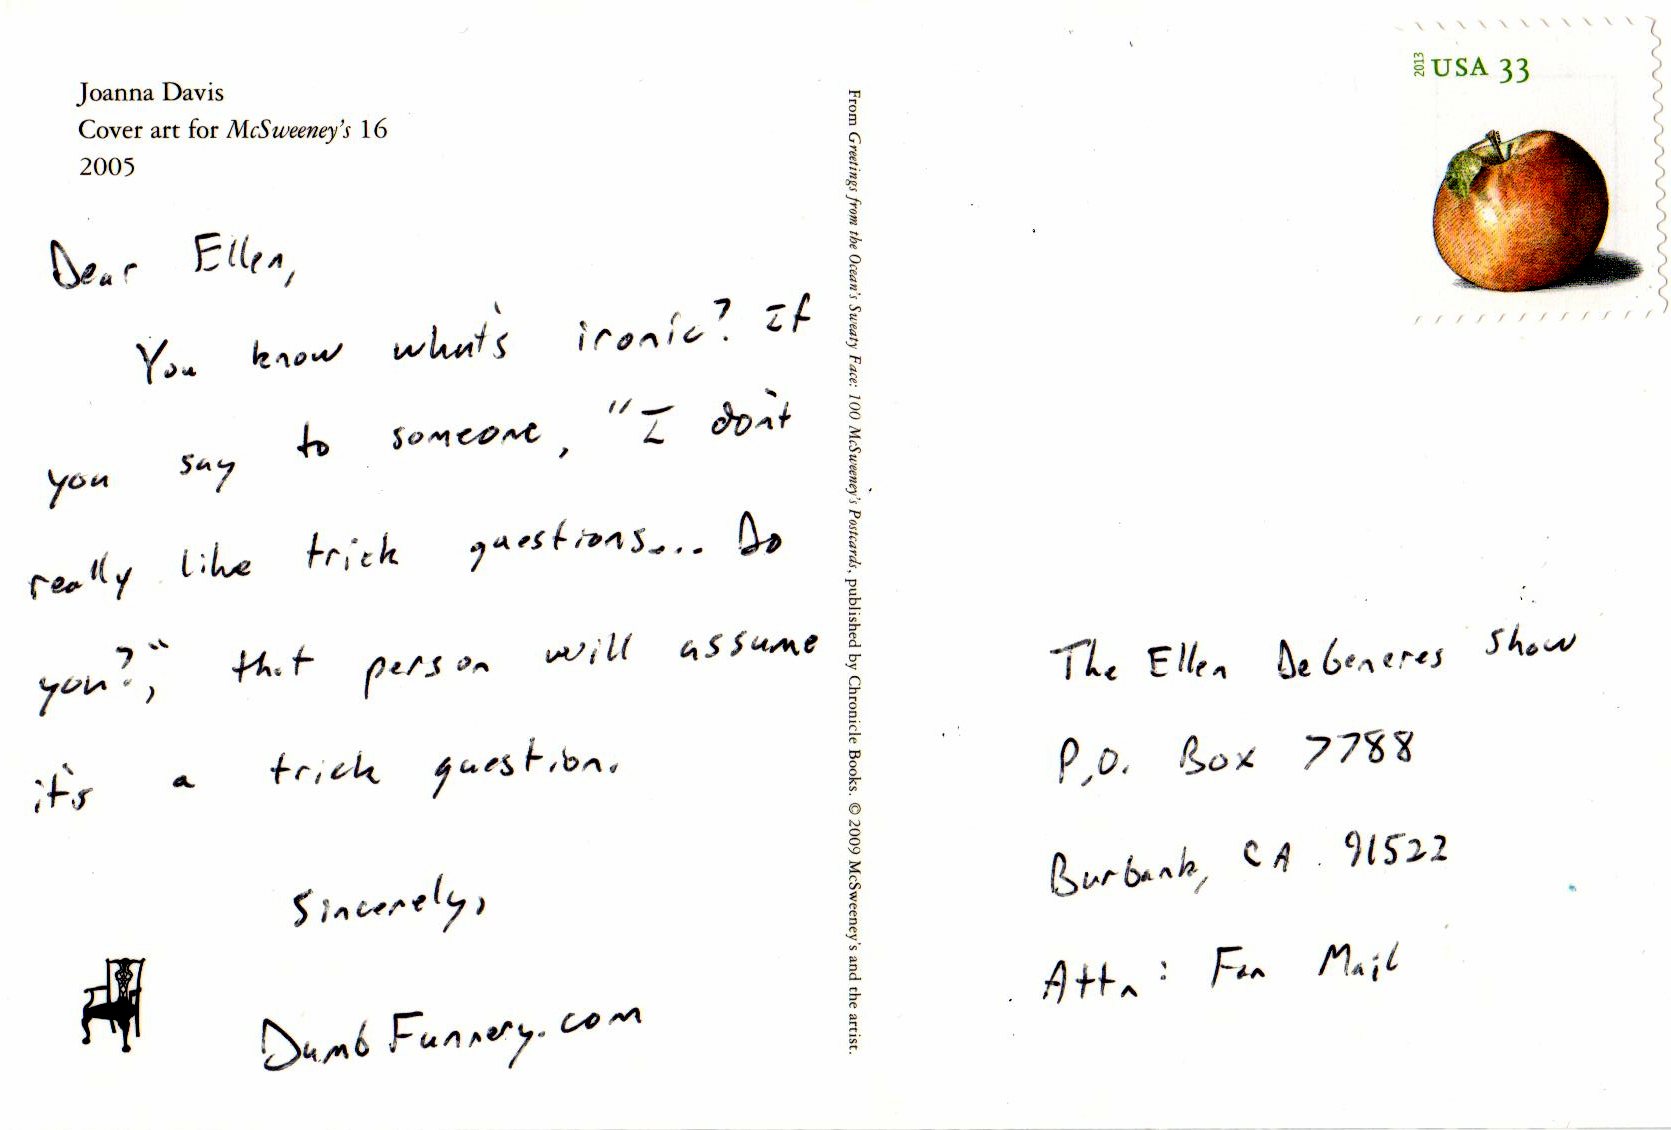 Joanna Davis
Cover art for McSweeney's 16
2005
Dear Ellen,
You know what's ironic? If
you say to someone, "I don't
really like trick questions... Do
you?", that person will assume
it's a trick question.
Sincerely,
DumbFunnery.com
From Greetings from the Ocean's Sweaty Face: 100 McSweeney's Postcards, published by Chronicle Books. © 2009 McSweeney's and the artist.
2013 USA 33
The Ellen DeGeneres Show
P.O. Box 7788
Burbank, CA 91522
Attn: Fan Mail